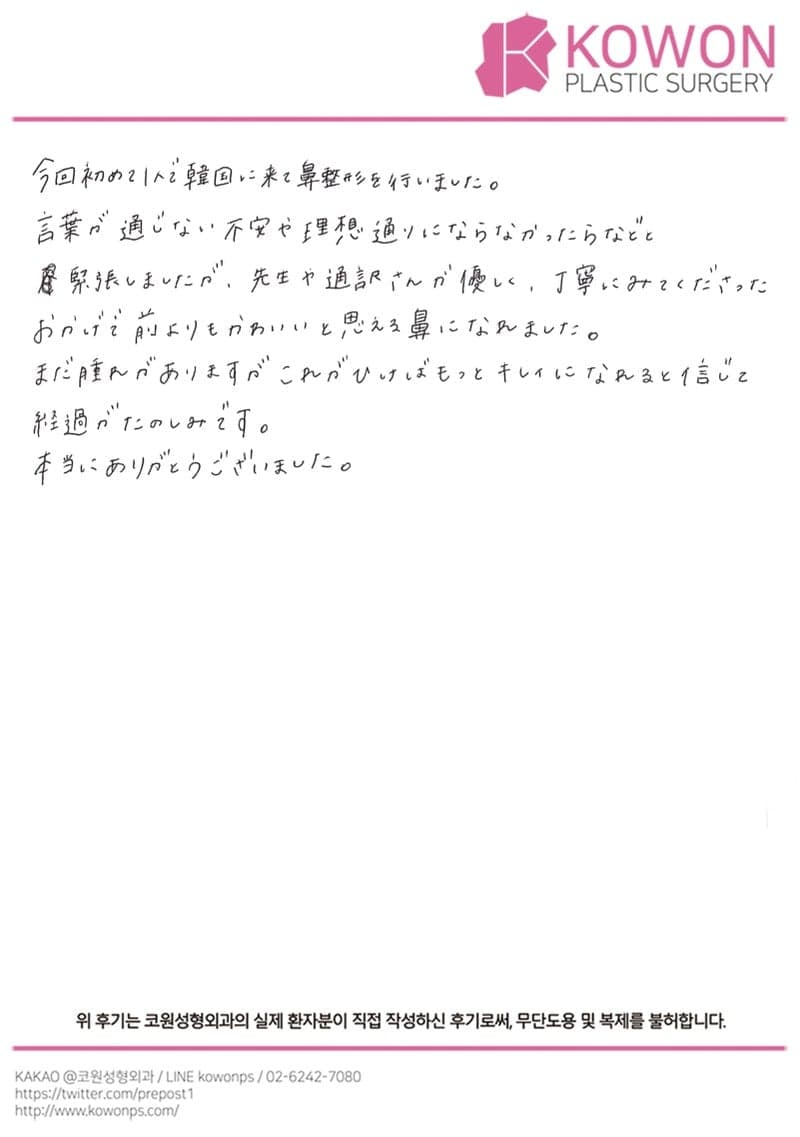 KOWON
PLASTIC SURGERY
今回初めて1人で韓国に来て鼻整形を行いました。
言葉が通じない不安や理想通りにならなかったらなどと
緊張しましたが、先生や通訳さんが優しく、丁寧にみてくださった
おかげで前よりもかわいいと思える鼻になれました。
まだ腫れがありますがこれがひけばもっとキレイになれると信じて
経過がたのしみです。
本当にありがとうございました。
위 후기는 코원성형외과의 실제 환자분이 직접 작성하신 후기로써, 무단도용 및 복제를 불허합니다.
KAKAO @코원성형외과 / LINE kowonps / 02-6242-7080
https://twitter.com/prepost1
http://www.kowonps.com/